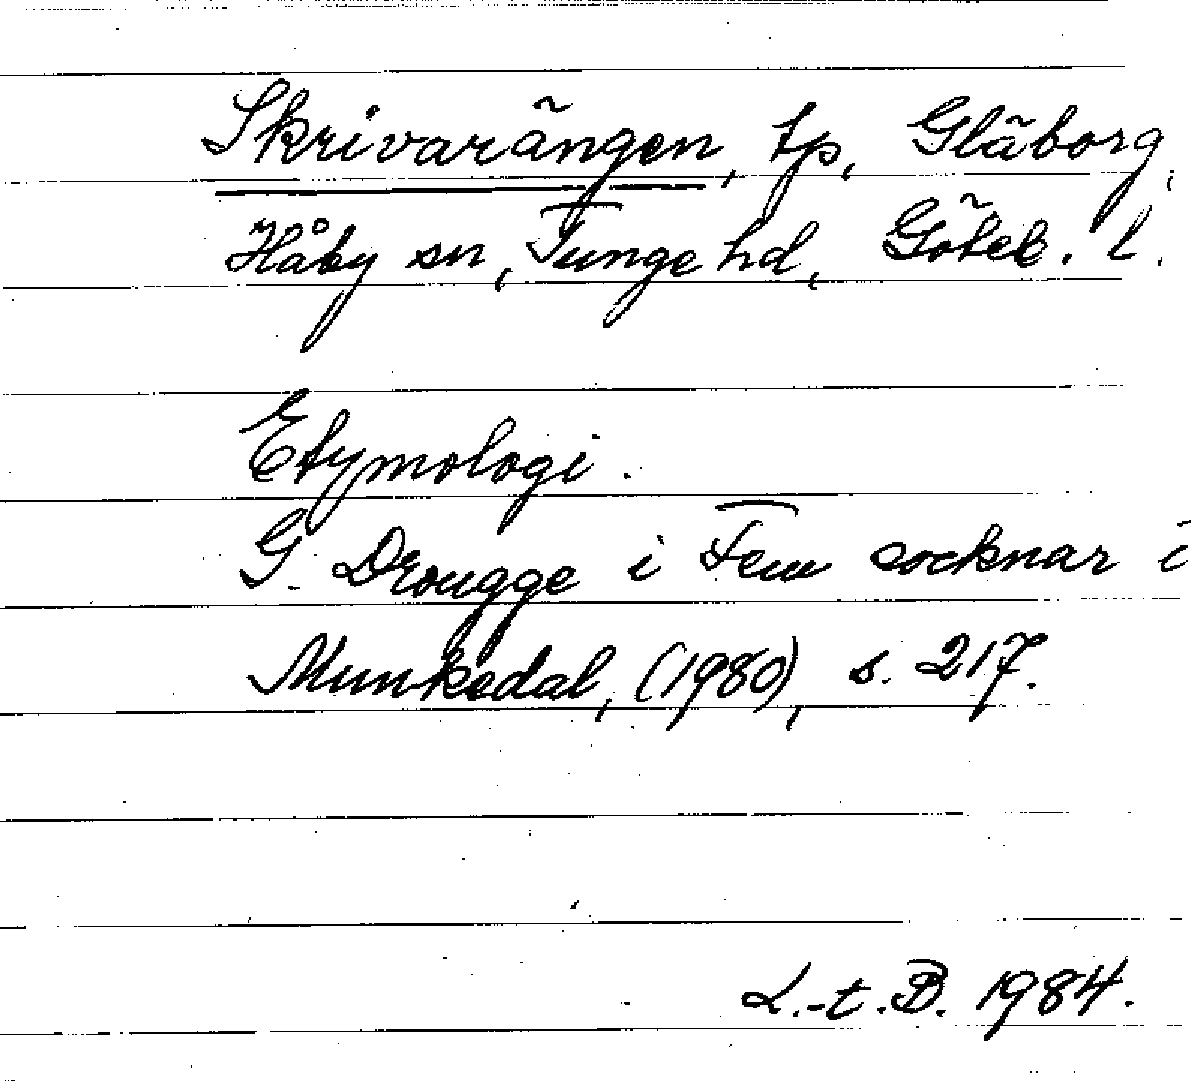 Skrivarängen, tp, Gläborg,
Håby sn, Tunge hd, Göteb. l.
Etymologi.
G. Drougge i Fem socknar i
Munkedal, (1980), s. 217.
L.-t.B. 1984.